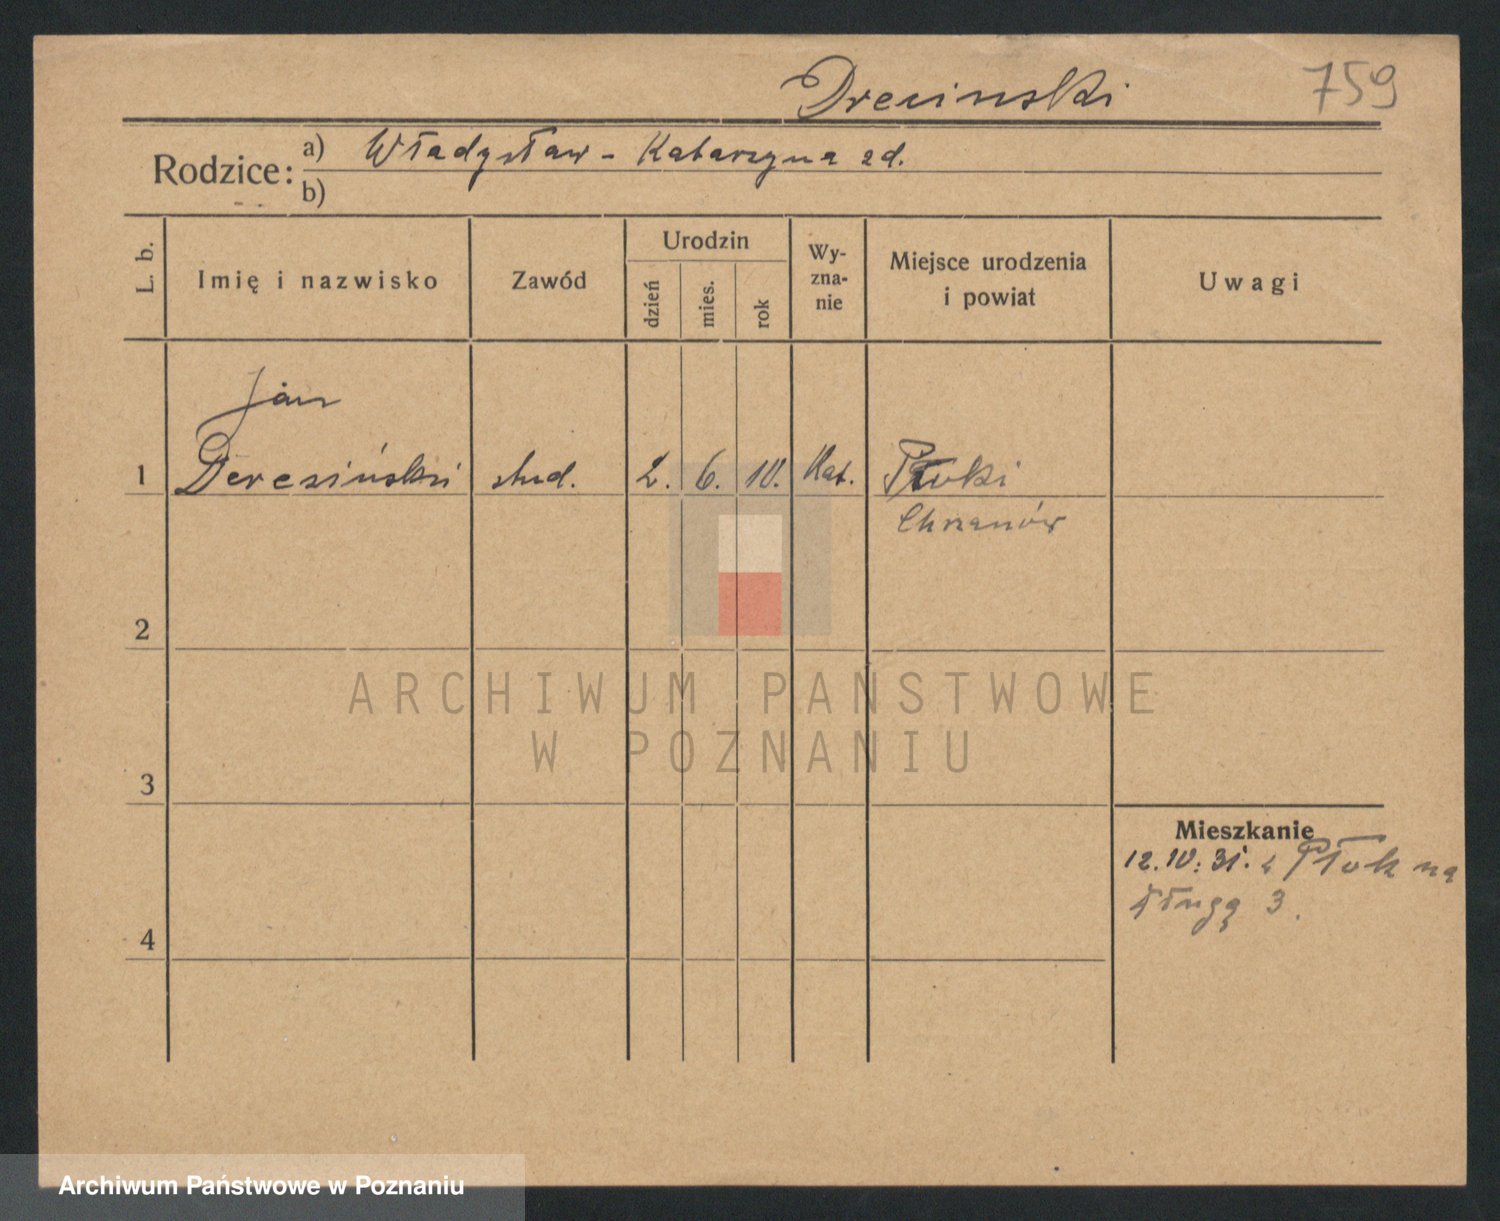 Drecinski 759
Rodzice: a) Władysław - Katarzyna zd.
b)
L. b. Imię i nazwisko Zawód Urodzin dzień mies. rok Wy-zna-nie Miejsce urodzenia i powiat Uwagi
Jan
1 Deresiński stud. 2. 6. 10. Kat. Płoki
Chrzanów
2
ARCHIWUM PAŃSTWOWE
W POZNANIU
3
Mieszkanie
12. IV. 31. z Płok na
Długą 3.
4
Archiwum Państwowe w Poznaniu